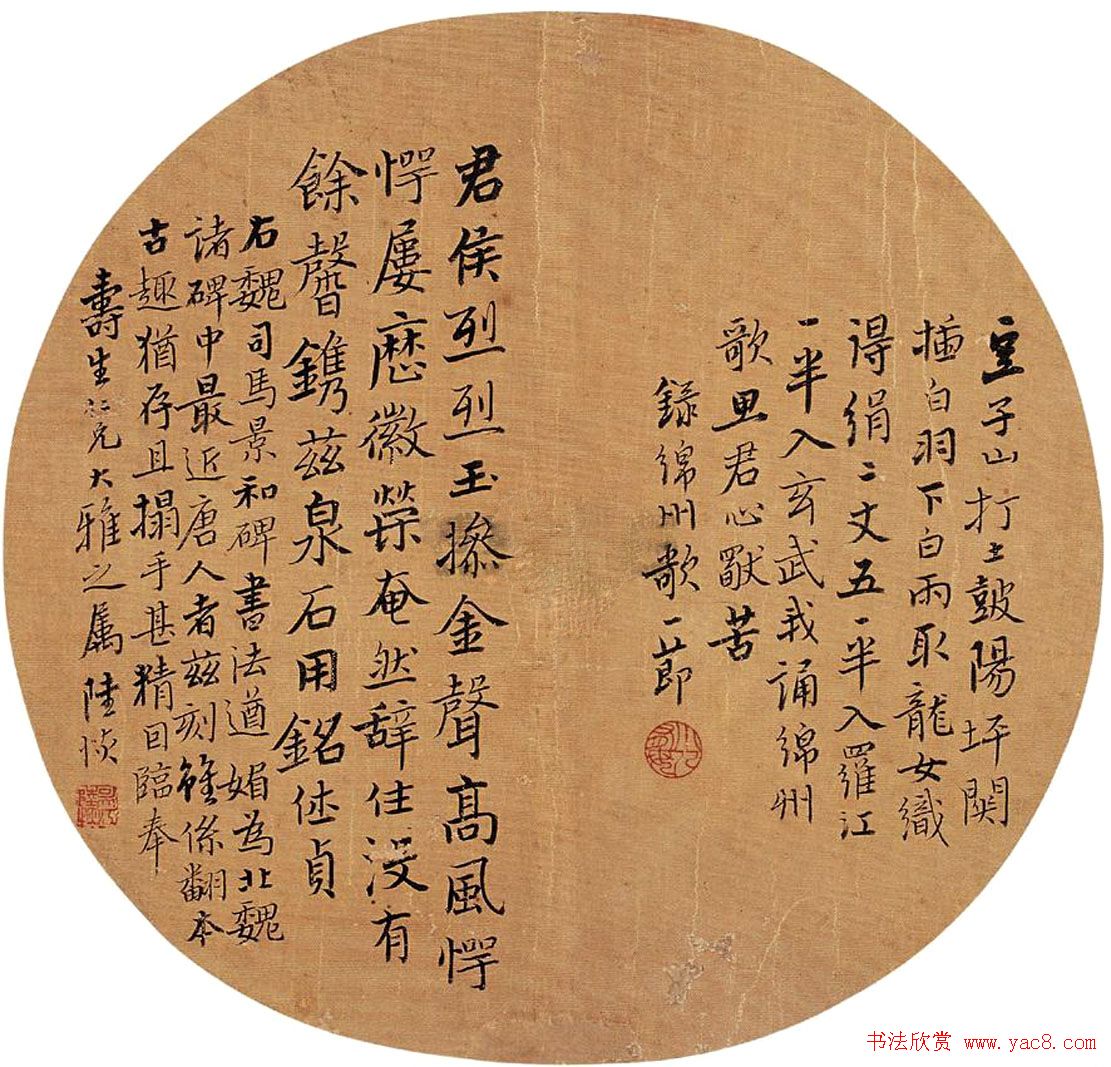 豆子山打土皷陽坪関
插白羽下白雨取龍女織
得絹二丈五一半入羅江
一半入玄武我誦綿州
歌思君心獸苦
録綿州歌一節
君侯烈烈玉摻金聲高風愕
愕屢應徽榮奄然辭仕没有
餘馨鐫兹泉石用銘休貞
右魏司馬景和碑書法遒媚為北魏
諸碑中最近唐人者兹刻雖係翻本
古趣猶存且搨手甚精因臨奉
壽生仁兄大雅之屬陸恢
书法欣赏 www.yac8.com